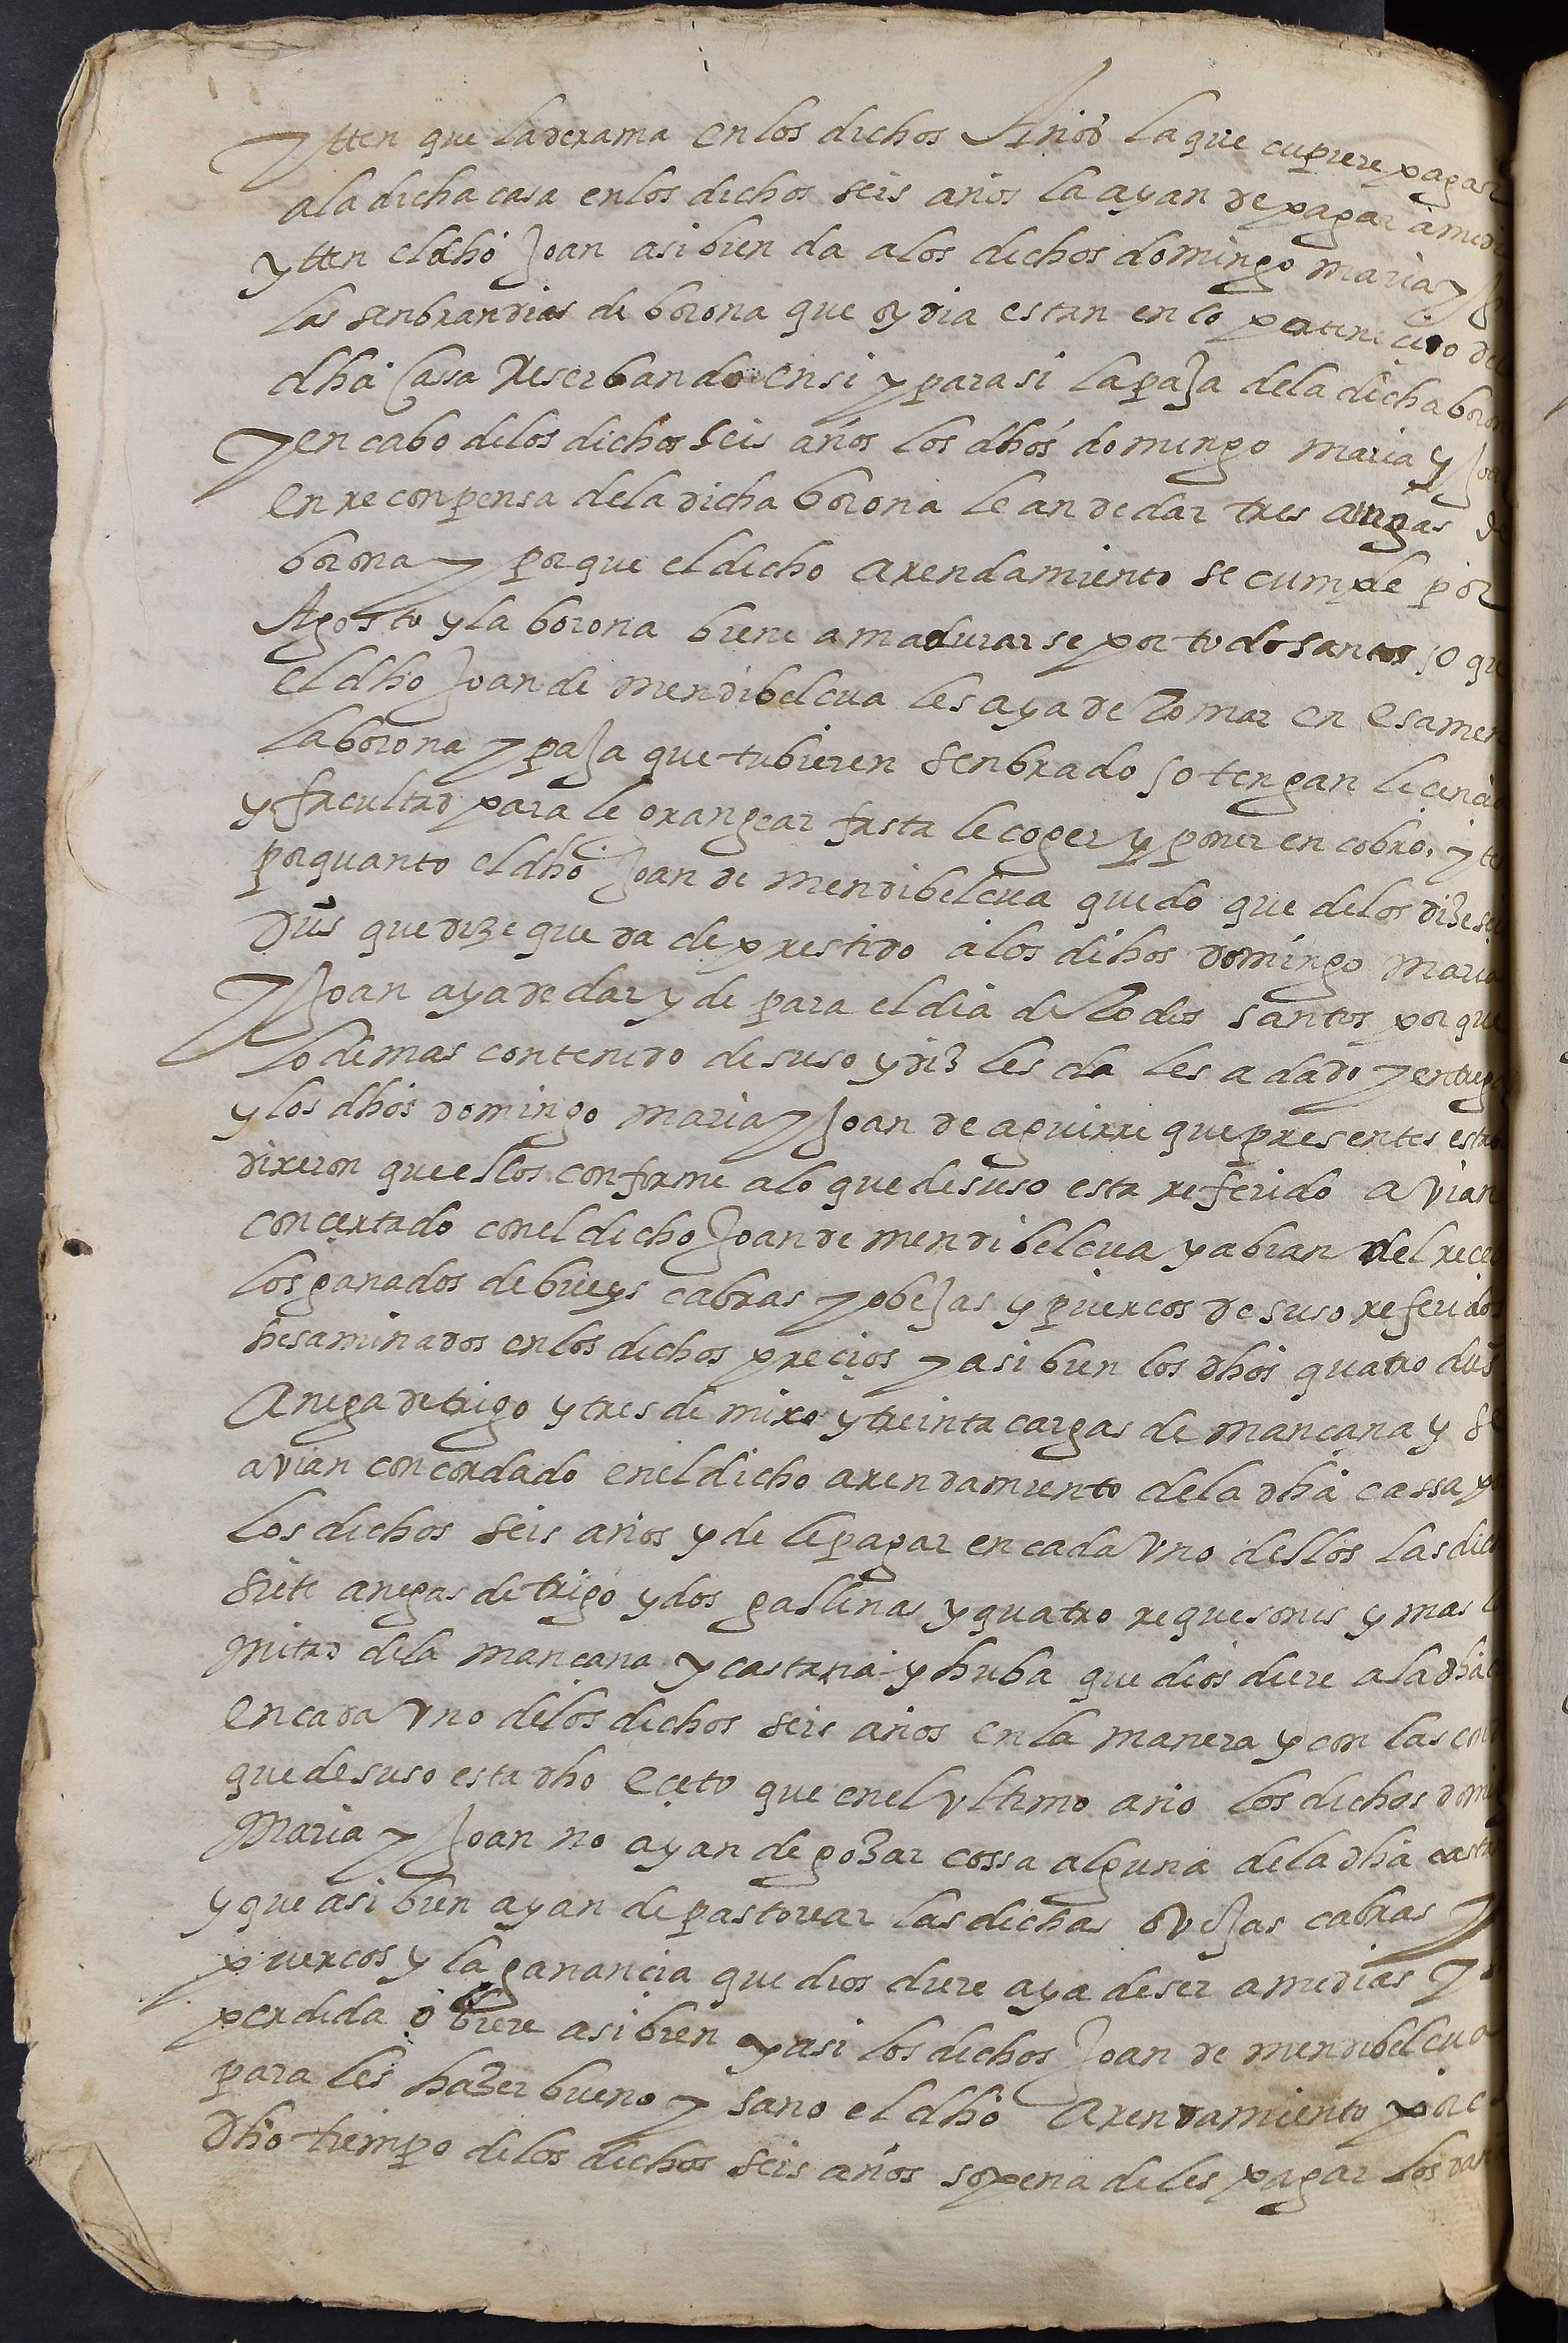 Ytten que la derama en los dichos Años la que cupiere pagar
a la dicha casa en los dichos seis años la ayan de pagar a medi
ytten el dho Joan asi bien da a los dichos domingo maria y Jo
las senbrandias de borona que oy dia estan en lo pertenecido de
dha Cassa Reserbando en si y para si la paja de la dicha boron
y en cabo de los dichos seis años los dhos domingo maria y Joan
en reconpensa de la dicha borona le an de dar tres anegas de
borona y porque el dicho arendamiento se cumple por
Agosto y la borona biene a madurarse por todo santos so que
el dho Joan de mendibelcua les aya de tomar en esamen
la borona y paja que tubieren senbrado so tengan licencia
y facultad para le grangear fasta le coger y poner en cobro, y te
por quanto el dho Joan de mendibelcua quedo que de los dize sei
dus que dize que da de prestido a los dhos domingo maria
y Joan aya de dar y de para el dia de todos santos porque
lo demas contenido de suso y diz les da les a dado y entrega
y los dhos domingo maria y Joan de aguirre que presentes estab
dixeron que ellos conforme a lo que de suso esta referido avian
concertado con el dicho Joan de mendibelcua y abian del rece
los ganados de bueys cabras y obejas y puercos de suso referidos
hesaminados en los dichos precios y asi bien los dhos quatro dus
Anega de trigo y tres de mixo y treinta cargas de mançana y se
avian concordado en el dicho arendamiento de la dha cassa p
los dichos seis años y de le pagar en cada vno dellos las dich
siete anegas de trigo y dos gallinas y quatro requesones y mas l
mitad de la mancana y castana y huba que dios diere a la dha
en cada vno de los dichos seis años en la manera y con las con
que de suso esta dho eceto que en el vltimo año los dichos domi
maria y Joan no ayan de gozar cossa alguna de la dha casta
y que asi bien ayan de pastorear las dichas ovejas cabras y
puercos y la ganancia que dios diere aya de ser a medias y
perdida o biere asi bien y asi los dichos Joan de mendibelcua
para les hazer bueno y sano el dho arendamiento por e
dho tiempo de los dichos seis años so pena de les pagar los dan